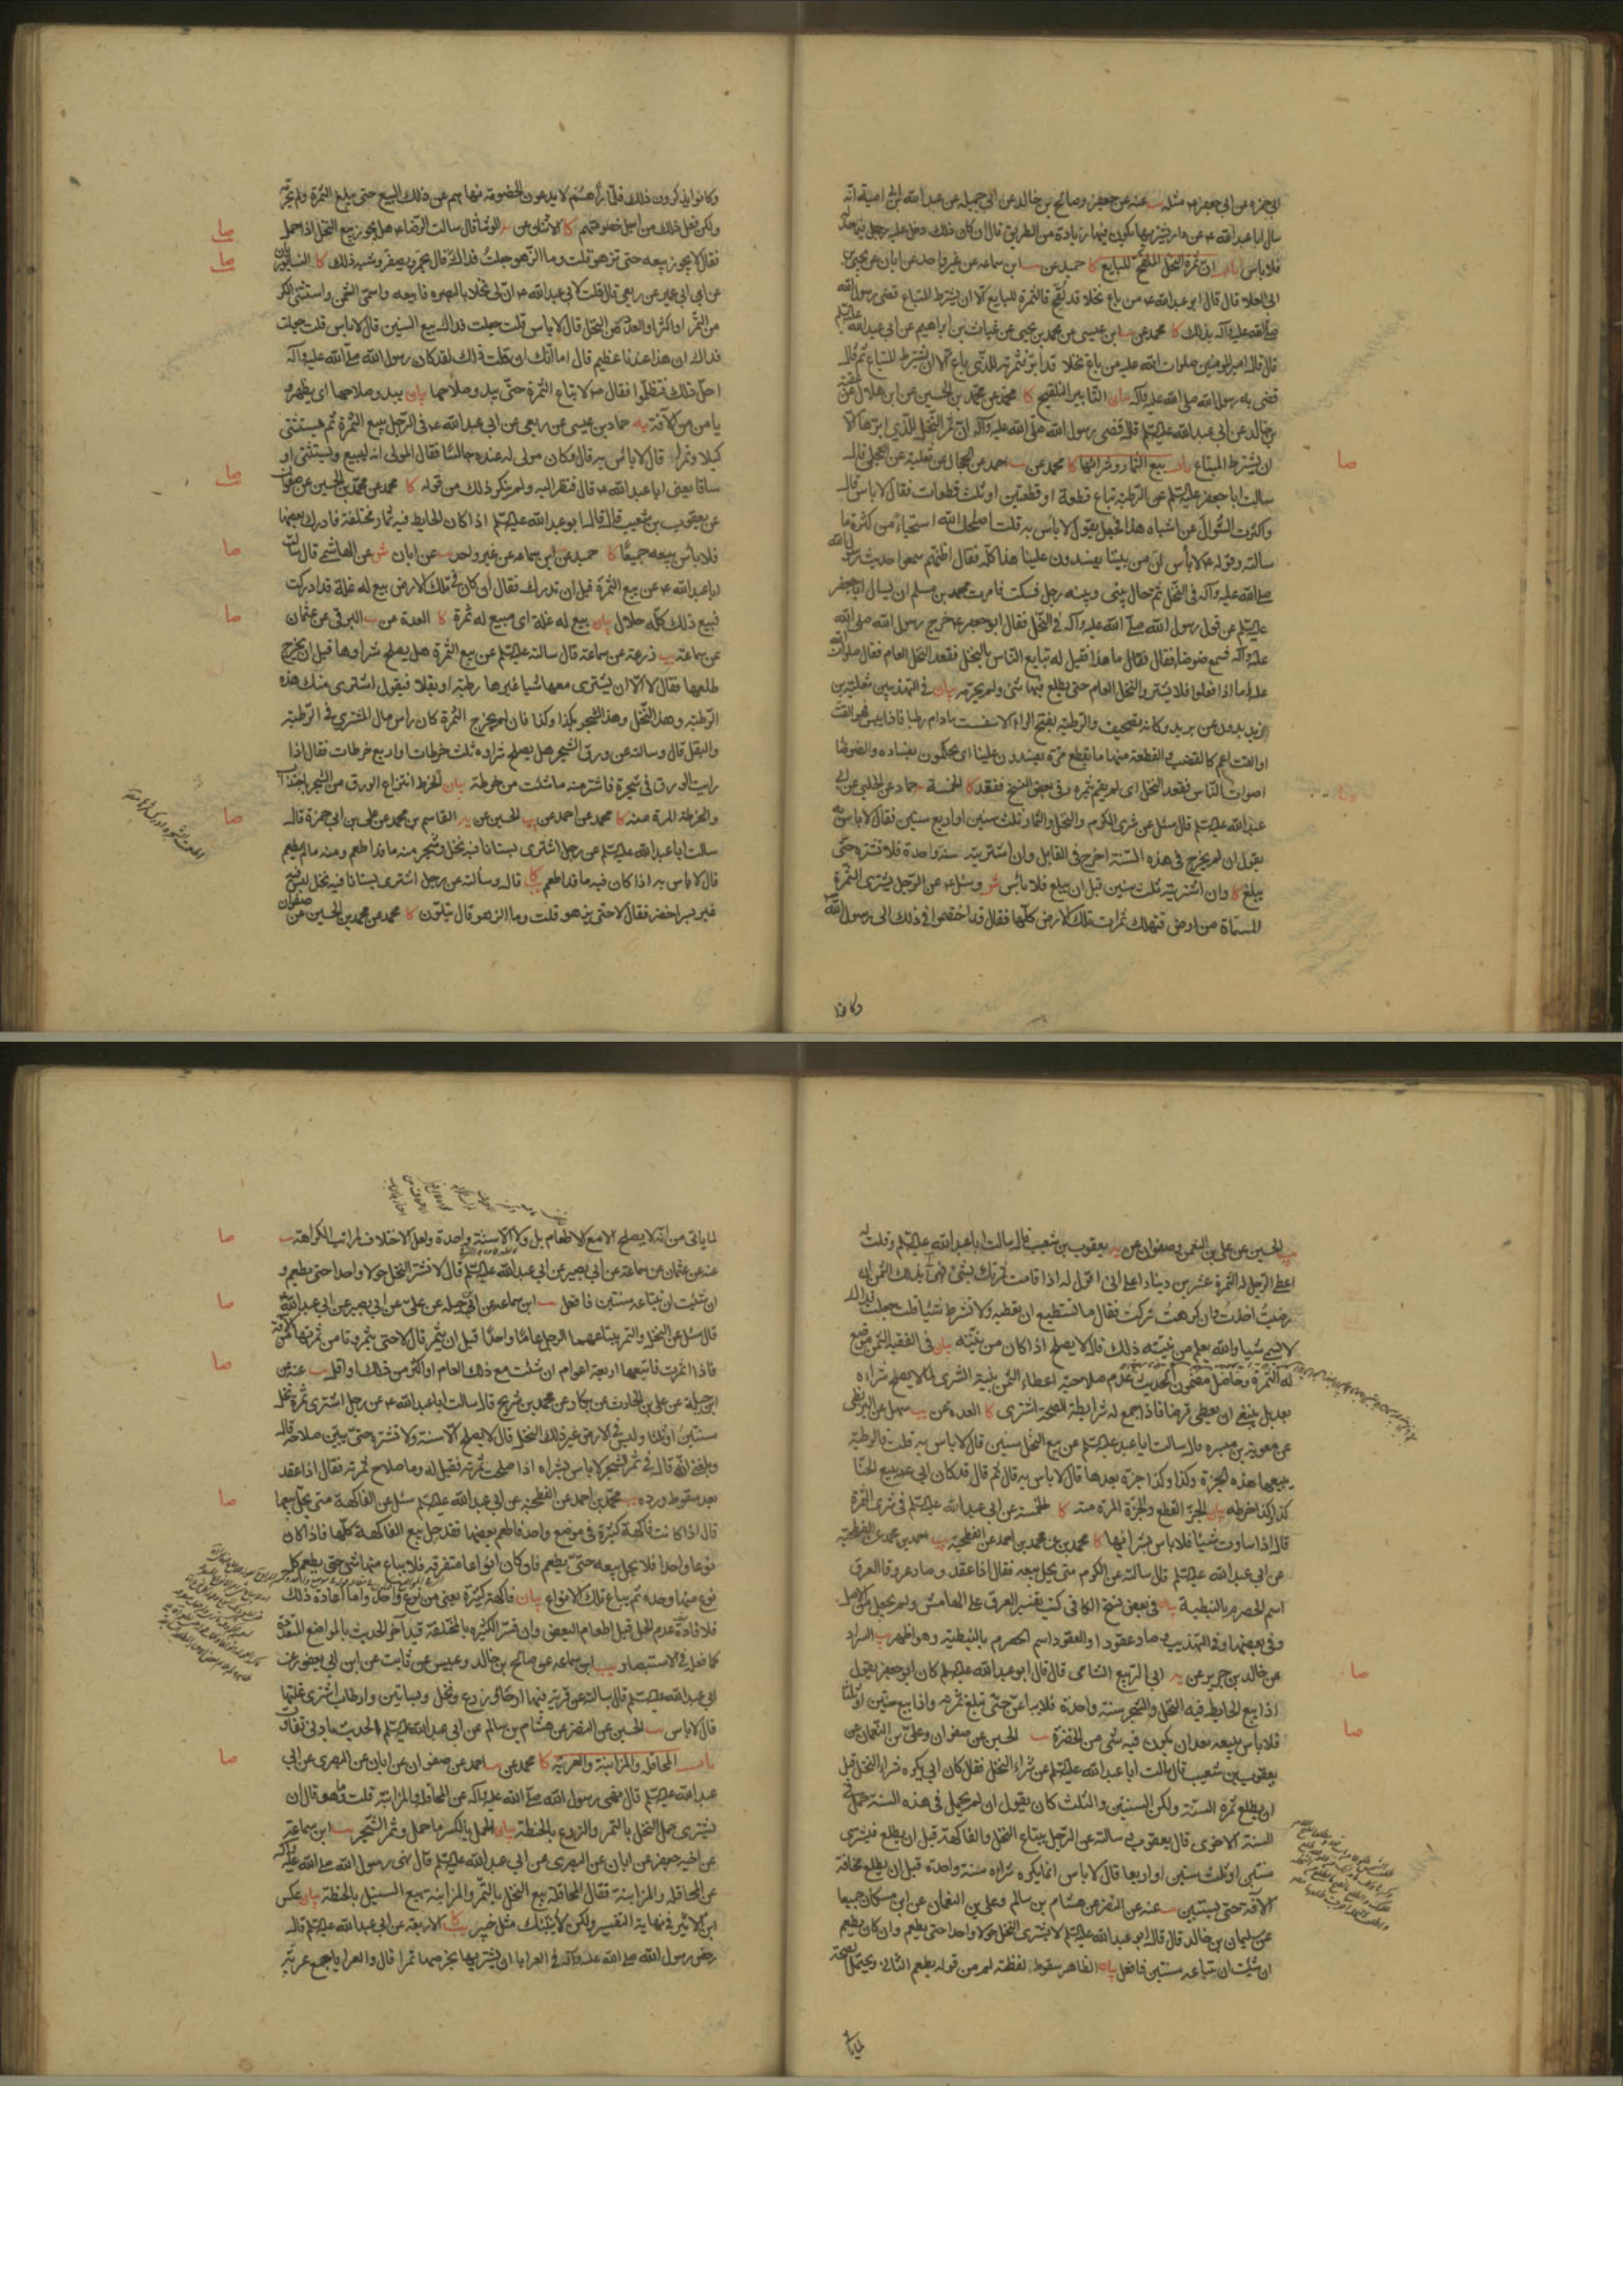 ابي حمزة عن ابي جعفر ع مثله عنه عن جعفر وصالح بن خالد عن ابي جميلة عن عبد الله بن ابي امية انه
سال ابا عبد الله ع عن دار يشتريها يكون فيها زيادة من الطريق قال ان كان ذلك دخل عليه فيما حد له
فلا باس باب ان ثمرة النخل الملقح للبايع كا حميد عن ابن سماعه عن غير واحد عن ابان عن يحيى بن
ابي العلا قال قال ابو عبد الله ع من باع نخلا قد لقح فالثمرة للبايع الا ان يشترط المبتاع قضى رسول الله
صلى الله عليه وآله بذلك كا محمد عن ابن عيسى عن محمد بن يحيى عن غياث بن ابراهيم عن ابي عبد الله عليه السلم
قال قال امير المؤمنين صلوات الله عليه من باع نخلا قد ابر فثمرته للذي باع الا ان يشترط المبتاع ثم قال
قضى به رسول الله صلى الله عليه وآله بيان التابير التلقيح كا محمد عن محمد بن الحسين عن ابن هلال عن عقبة
بن خالد عن ابي عبد الله عليه السلم قال قضى رسول الله صلى الله عليه وآله ان ثمر النخل للذي ابرها الا
ان يشترط المبتاع باب بيع الثمار وشرائها كا محمد عن احمد عن الحجال عن ثعلبة عن العجلي قال
سالت ابا جعفر عليه السلم عن الرطبة تباع قطعة او قطعتين او ثلث قطعات فقال لا باس قال
واكثرت السؤال عن اشباه هذا فجعل يقول لا باس به قلت اصلحك الله استحياء من كثرة ما
سالته وقوله لا باس ان من يلينا يفسدون علينا هذا كله فقال اظنهم سمعوا حديث رسول الله
صلى الله عليه وآله في النخل ثم حال بيني وبينه رجل فسكت فامرت محمد بن مسلم ان يسال ابا جعفر
عليه السلم عن قول رسول الله صلى الله عليه وآله في النخل فقال ابو جعفر ع خرج رسول الله صلى الله
عليه وآله فسمع ضوضاء فقال ما هذا فقيل له تبايع الناس بالنخل فقعد النخل العام فقال صلوات الله
عليه اما اذا فعلوا فلا يشتروا النخل العام حتى يطلع فيها شئ ولم يحرمه بيان في التهذيبين ثعلبة بن
زيد بدون عن بريد وكانه تصحيف والرطبة بفتح الراء الاسفست مادام رطبا فاذا يبس فهو القت
اصوات الناس فقعد النخل اى لم يقم بثمره وفي بعض النسخ ففقد كا الخمسة حماد عن الحلبي عن ابي
عبد الله عليه السلم قال سئل عن شرى الكرم والنخل والثمار ثلث سنين او اربع سنين فقال لا باس به
يقول ان لم يخرج في هذه السنة اخرج في القابل وان اشتريته سنة واحدة فلا تشتره حتى
يبلغ كا وان اشتريته ثلث سنين قبل ان يبلغ فلا باس ش وسئل ع عن الرجل يشترى الثمرة
المسماة من ارض فتهلك ثمرات تلك الارض كلها فقال قد اختصموا في ذلك الى رسول الله
وكانوا
وكانوا يذكرون ذلك فلما راهم لا يدعون الخصومة نهاهم عن ذلك البيع حتى يبلغ الثمرة ولم يحرمه
ولكن فعل ذلك من اجل خصومتهم كا الاثنان عن الوشا قال سالت الرضا ع هل يجوز بيع النخل اذا حمل
فقال لا يجوز بيعه حتى تزهو قلت وما الزهو جعلت فداك قال يحمر ويصفر وشبه ذلك كا النيسابوريان
عن ابن ابي عمير عن ربعي قال قلت لابي عبد الله ع ان لي نخلا بالبصره فابيعه واسمى الثمن واستثنى الكر
من التمر او اكثر او العذق من النخل قال لا باس قلت جعلت فداك بيع السنين قال لا باس قلت جعلت
فداك ان هذا عندنا عظيم قال اما انك ان قلت ذلك لقد كان رسول الله صلى الله عليه وآله
احل ذلك فتظلموا فقال ص لا تباع الثمرة حتى يبدو صلاحها بيان يبدو صلاحها اى يظهر و
يامن من الآفة حماد بن عيسى عن ربعي عن ابي عبد الله ع في الرجل يبيع الثمرة ثم يستثنى
كيلا وتمرا قال لا باس به قال وكان مولى له عنده جالسا فقال المولى انه ليبيع ويستثنى او
ساقا يعنى ابا عبد الله ع قال فنظر اليه ولم ينكر ذلك من قوله كا محمد عن محمد بن الحسين عن صفوان
عن يعقوب بن شعيب قال قال ابو عبد الله عليه السلم اذا كان الحايط فيه ثمار مختلفة فادرك بعضها
فلا باس ببيعه جميعا كا حميد عن ابن سماعه عن غير واحد عن ابان ش عن الهاشمي قال سالت
ابا عبد الله ع عن بيع الثمرة قبل ان تدرك فقال ان كان في تلك الارض بيع له غلة قد ادركت
فبيع ذلك كله حلال بيان بيع له غلة اى مبيع له ثمرة كا العدة عن البرقي عن عثمان
عن سماعة زرعة عن سماعة قال سالته عليه السلم عن بيع الثمرة هل يصلح شراؤها قبل ان يخرج
طلعها فقال لا الا ان يشترى معها شيا غيرها رطبة او بقلا فيقول اشترى منك هذه
الرطبة وهذا النخل وهذا الشجر بكذا وكذا فان لم يخرج الثمرة كان راس مال المشترى في الرطبة
والبقل قال وسالته عن ورق الشجر هل يصلح شراؤه ثلث خرطات او اربع خرطات فقال اذا
رايت الورق في شجرة فاشتر منه ما شئت من خرطة بيان الخرط انتزاع الورق من الشجر باجتذاب
والخرطة المرة منه كا محمد عن احمد عن الحسين عن القاسم بن محمد عن علي بن ابي حمزة قال
سالت ابا عبد الله عليه السلم عن رجل اشترى بستانا فيه نخل وشجر منه ما قد اطعم ومنه ما لم يطعم
قال لا باس به اذا كان فيه ما قد اطعم كا قال وسالته عن رجل اشترى بستانا فيه نخل ليس فيه
غير بسر اخضر فقال لا حتى يزهو قلت وما الزهو قال يتلون كا محمد عن محمد بن الحسين عن صفوان
الحسين عن علي بن النعمان وصفوان عن يعقوب بن شعيب قال سالت ابا عبد الله عليه السلم وقلت له
اعطى الرجل له الثمرة عشرين دينارا على اني اقول له اذا قامت ثمرتك بشئ فهي لي بذلك الثمن ان
رضيت اخذت وان كرهت تركت فقال ما تستطيع ان تعطيه ولا تشترط شيئا قلت جعلت فداك
لا يسمى شيا والله يعلم من نيته ذلك قال لا يصلح اذا كان من نيته بيان في الفقيه الثمن موضع
له الثمرة وحاصل مضمون الحديث عدم صلاحية اعطاء الثمن بنية الشرى لما لا يصلح شراءه
بعد بل ينبغي ان يعطى قرضا فاذا جمع له شرايط الصحة اشترى كا العدة عن سهل عن البزنطي
عن معوية بن ميسره قال سالت ابا عبد الله عليه السلم عن بيع النخل سنين قال لا باس به قلت فالرطبة
يبيعها هذه الجزة وكذا وكذا جزة بعدها قال لا باس به قال ثم قال قد كان ابي ع يبيع الحنا
كذا وكذا خرطه بيان الجز القطع والجزة المرة منه كا الخمسة عن ابي عبد الله عليه السلم في شرى الثمرة
قال اذا ساوت شيئا فلا باس بشرائها كا محمد بن محمد بن احمد عن الفطحية
عن ابي عبد الله عليه السلم قال سالته عن الكرم متى يحل بيعه فقال اذا عقد وصار عروقا العرق
اسم الحصرم بالنبطية بيان في بعض نسخ الكافي كتب تفسير العرق على الهامش ولم يجعل من الاصل
وفي بعضها وفي التهذيب وصار عقودا والعقود اسم الحصرم بالنبطية وهو اظهر السراد
عن خالد بن جرير عن ابي الربيع الشامي قال قال ابو عبد الله عليه السلم كان ابو جعفر يقول
اذا بيع الحايط فيه النخل والشجر سنة واحدة فلا يباعن حتى تبلغ ثمرته واذا بيع سنتين او ثلثا
فلا باس ببيعه بعد ان يكون فيه شئ من الخضرة الحسين عن صفوان وعلي بن النعمان عن
يعقوب بن شعيب قال سالت ابا عبد الله عليه السلم عن شراء النخل فقال كان ابي يكره شراء النخل قبل
ان يطلع ثمرة السنة ولكن السنتين والثلث كان يقول ان لم يحمل في هذه السنة حمل في
السنة الاخرى قال يعقوب وسالته عن الرجل يبتاع النخل والفاكهة قبل ان يطلع فيشترى
سنتين او ثلث سنين او اربعا قال لا باس انما يكره شراؤه سنة واحدة قبل ان يطلع مخافة
الآفة حتى يستبين عنه عن النضر عن هشام بن سالم وعلي بن النعمان عن ابن مسكان جميعا
عن سليمان بن خالد قال قال ابو عبد الله عليه السلم لا يشترى النخل حولا واحدا حتى يطعم وان كان يطعم
ان شئت ان تبتاعه سنتين فافعل بيان الظاهر سقوط لفظة لم من قوله يطعم الثاني ويحتمل صحته
لما ياتي
لما ياتي من انه لا يصلح الا مع الاطعام بل ولا الا سنة واحدة ولعل الاختلاف لمراتب الكراهة
عنه عن عثمان عن سماعة عن ابي بصير عن ابي عبد الله عليه السلم قال لا تشتر النخل حولا واحدا حتى يطعم و
ان شئت ان تبتاعه سنتين فافعل ابن سماعة عن ابن جبلة عن علي عن ابي بصير عن ابي عبد الله ع
قال سئل عن النخل والتمر يبتاعهما الرجل عاما واحدا قبل ان يثمر قال لا حتى يثمر وتامن ثمرتها الآفة
فاذا اثمرت فابتعها اربعة اعوام ان شئت مع ذلك العام او اكثر من ذلك او اقل عنه عن
ابن جبلة عن علي بن الحارث عن بكار عن محمد بن شريح قال سالت ابا عبد الله ع عن رجل اشترى ثمرة نخل
سنتين او ثلثا وليس في الارض غير ذلك النخل قال لا يصلح الا سنة ولا تشتره حتى يبين صلاحه قال
وبلغني انه قال في ثمر الشجر لا باس بشراه اذا صلحت ثمرته فقيل له وما صلاح ثمرته فقال اذا عقد
بعد سقوط ورده محمد بن احمد عن الفطحية عن ابي عبد الله عليه السلم سئل عن الفاكهة متى يحل بيعها
قال اذا كانت فاكهة كثيرة في موضع واحد فاطعم بعضها فقد حل بيع الفاكهة كلها فاذا كان
نوعا واحدا فلا يحل بيعه حتى يطعم فان كان انواعا متفرقة فلا يباع منها شئ حتى يطعم كل
نوع منها وحده ثم يباع تلك الانواع بيان فاكهة كثيرة يعنى من نوع واحد واما اعادة ذلك
فلافادة عدم الحل قبل اطعام البعض وان فسر الكثيره بالمختلفة قيد آخر الحديث بالمواضع المتعددة
كما فعله في الاستبصار ابن سماعه عن صالح بن خالد وعبيس عن ثابت عن ابن ابي يعفور عن
ابي عبد الله عليه السلم قال سالته عن قرية فيها ارحاء وزرع ونخل وبساتين وارطاب اشترى غلتها
قال لا باس الحسين عن النضر عن هشام بن سالم عن ابي عبد الله عليه السلم الحديث بادنى تفاوت
باب المحاقلة والمزابنة والعرية كا محمد عن احمد عن صفوان عن ابان عن البصري عن ابي
عبد الله عليه السلم قال نهى رسول الله صلى الله عليه وآله عن المحاقلة والمزابنة قلت وما هو قال ان
يشترى حمل النخل بالتمر والزرع بالحنطة بيان الحمل بالكسر ما حمل وثمر الشجر ابن سماعة
عن اخيه جعفر عن ابان عن البصري عن ابي عبد الله عليه السلم قال نهى رسول الله صلى الله عليه وآله
عن المحاقلة والمزابنة فقال المحاقلة بيع النخل بالتمر والمزابنة بيع السنبل بالحنطة بيان عكس
ابن الاثير في نهايته التفسير ولكن لا ينبئك مثل خبير كا الاربعة عن ابي عبد الله عليه السلم قال
رخص رسول الله صلى الله عليه وآله في العرايا ان يشتريها بخرصها تمرا قال والعرايا جمع عرية